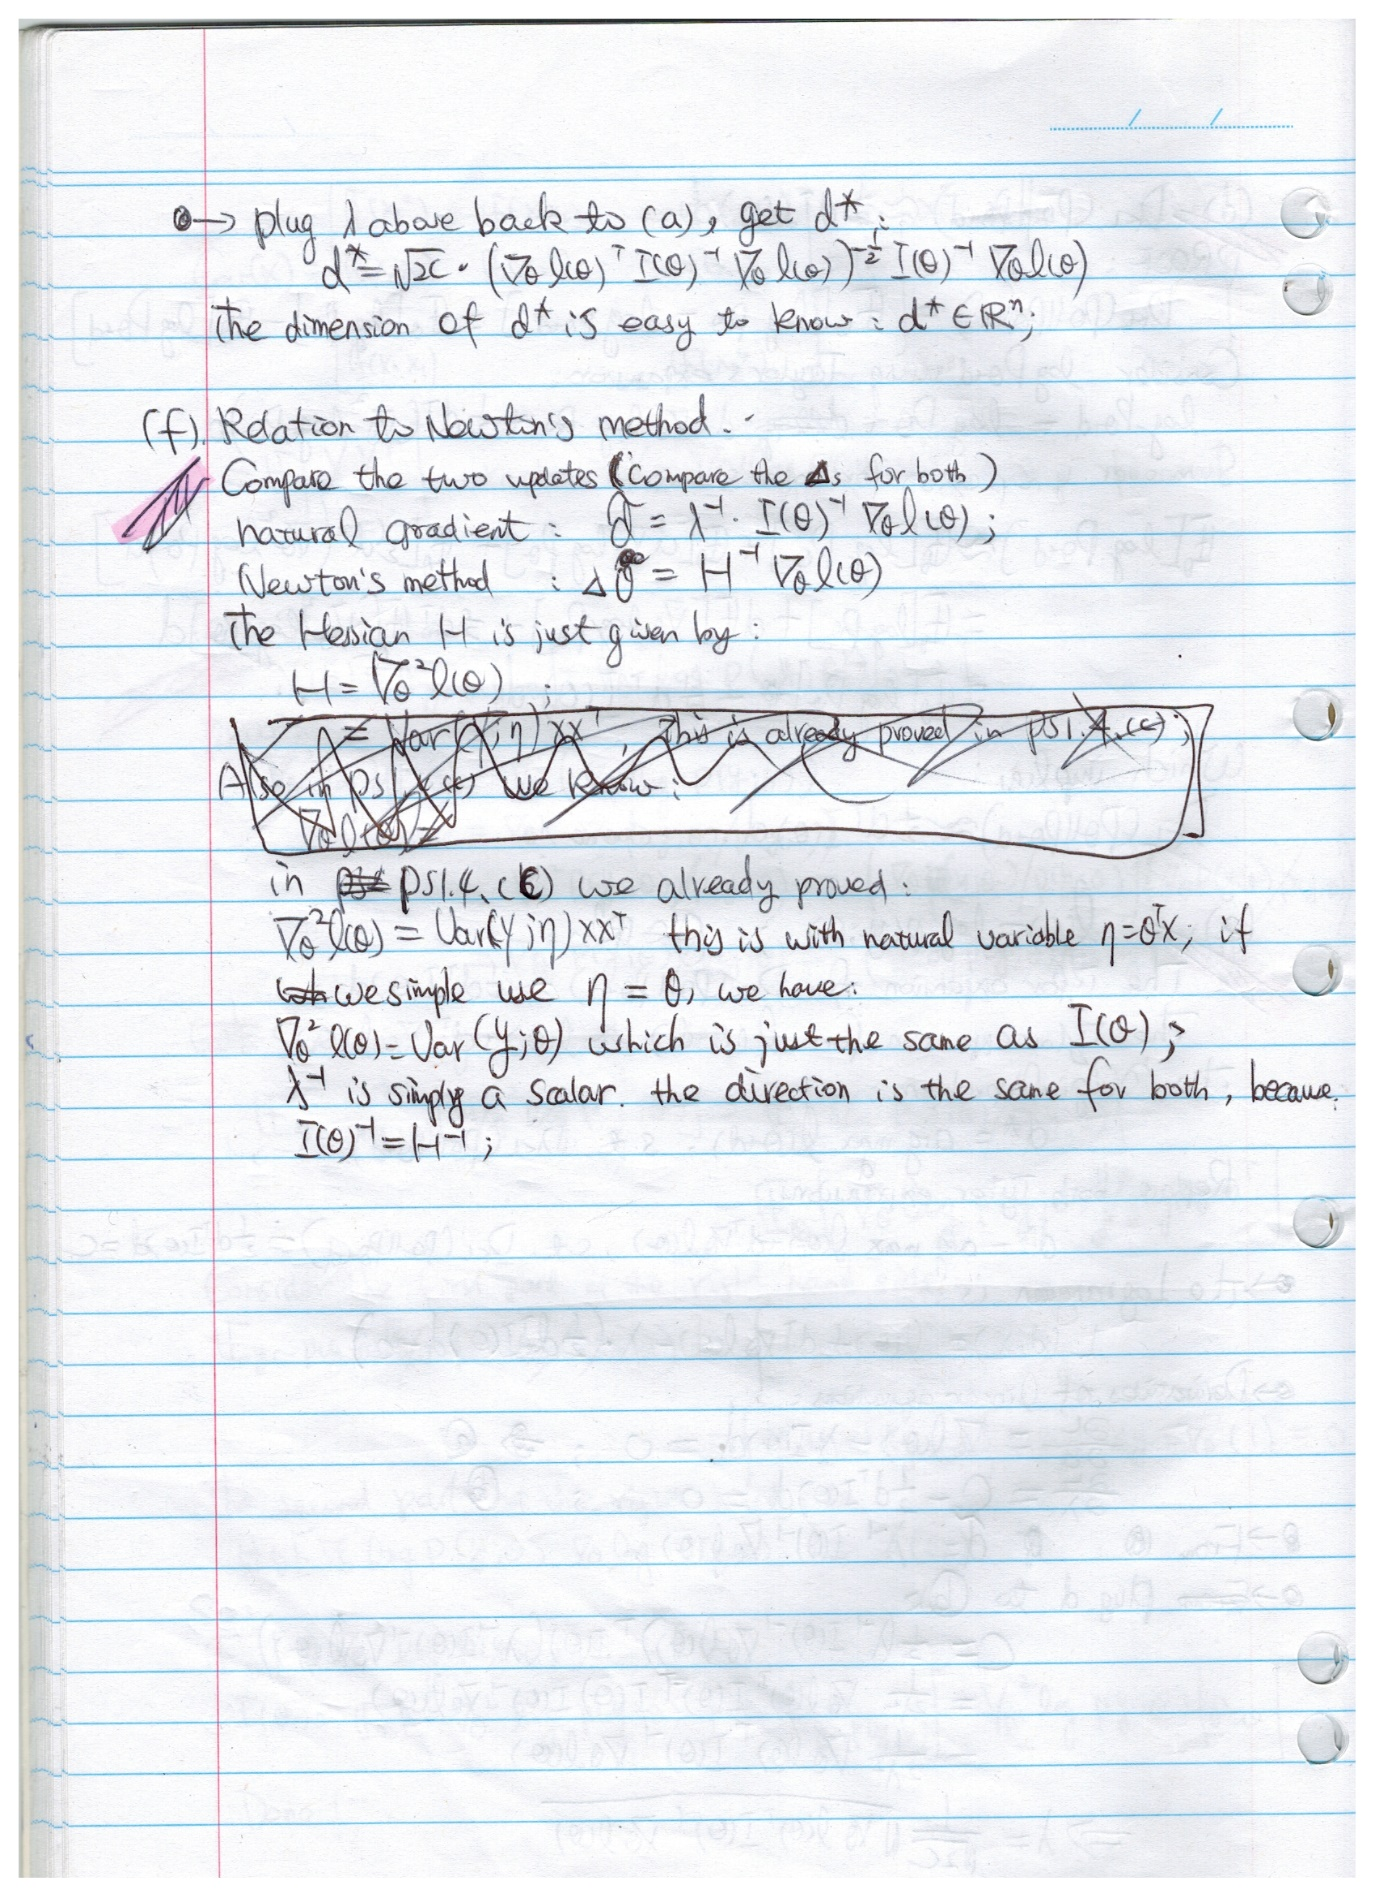 → plug λ above back to (a), get d*;
d* = √2c · (∇θ l(θ)ᵀ I(θ)⁻¹ ∇θ l(θ))^(-1/2) I(θ)⁻¹ ∇θ l(θ)
The dimension of d* is easy to know: d* ∈ ℝⁿ;
(f). Relation to Newton's method.
Compare the two updates (compare the Δs for both)
natural gradient : d = λ⁻¹· I(θ)⁻¹ ∇θ l(θ);
Newton's method : Δθ = H⁻¹ ∇θ l(θ)
The Hessian H is just given by:
H = ∇θ² l(θ) ;
= Var(y;η) xxᵀ, This is already proved in ps1.4.(c);
Also in ps1.4.(c) we know:
∇θ l(θ) =
in ps1.4.(c) we already proved:
∇θ² l(θ) = Var(y;η) xxᵀ this is with natural variable η=θᵀx; if
we simple use η = θ, we have:
∇θ² l(θ) = Var(y;θ) which is just the same as I(θ);
λ⁻¹ is simply a scalar. the direction is the same for both, because.
I(θ)⁻¹ = H⁻¹;